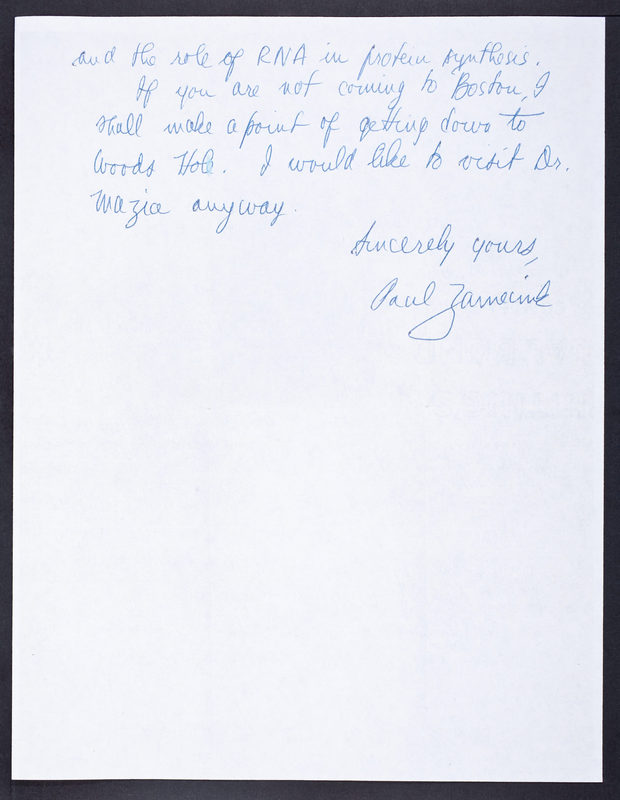 and the role of RNA in protein synthesis.
If you are not coming to Boston, I
shall make a point of getting down to
Woods Hole. I would like to visit Dr.
Mazia anyway.
Sincerely yours,
Paul Zamecnik